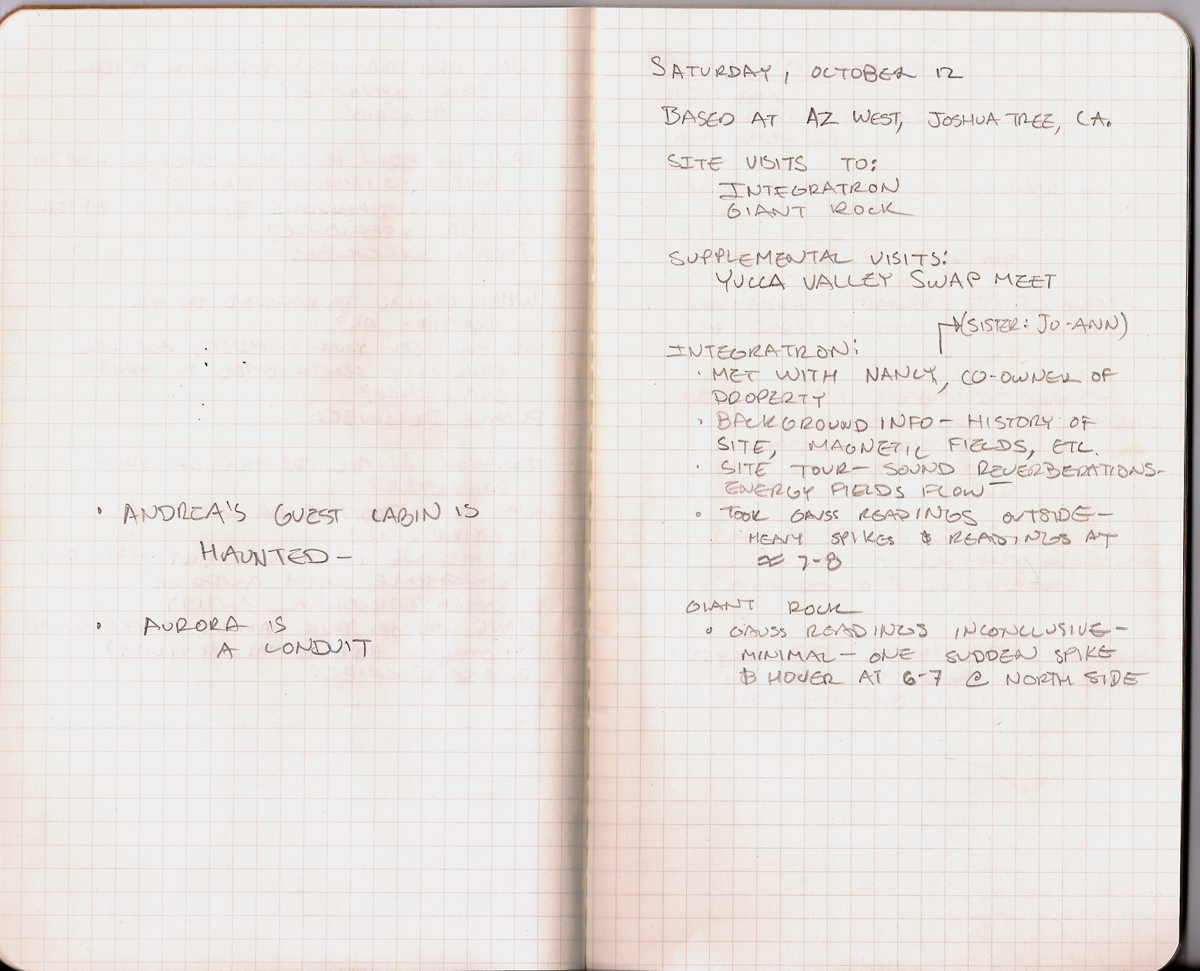 • ANDREA'S GUEST CABIN IS
HAUNTED —
• AURORA IS
A CONDUIT
SATURDAY, OCTOBER 12
BASED AT AZ WEST, JOSHUA TREE, CA.
SITE VISITS TO:
INTEGRATRON
GIANT ROCK
SUPPLEMENTAL VISITS:
YUCCA VALLEY SWAP MEET
(SISTER: JO-ANN)
INTEGRATRON:
• MET WITH NANCY, CO-OWNER OF
PROPERTY
• BACKGROUND INFO — HISTORY OF
SITE, MAGNETIC FIELDS, ETC.
• SITE TOUR — SOUND REVERBERATIONS —
ENERGY FIELDS FLOW —
• TOOK GAUSS READINGS OUTSIDE —
HEAVY SPIKES & READINGS AT
≈ 7-8
GIANT ROCK
• GAUSS READINGS INCONCLUSIVE —
MINIMAL — ONE SUDDEN SPIKE
& HOVER AT 6-7 @ NORTH SIDE